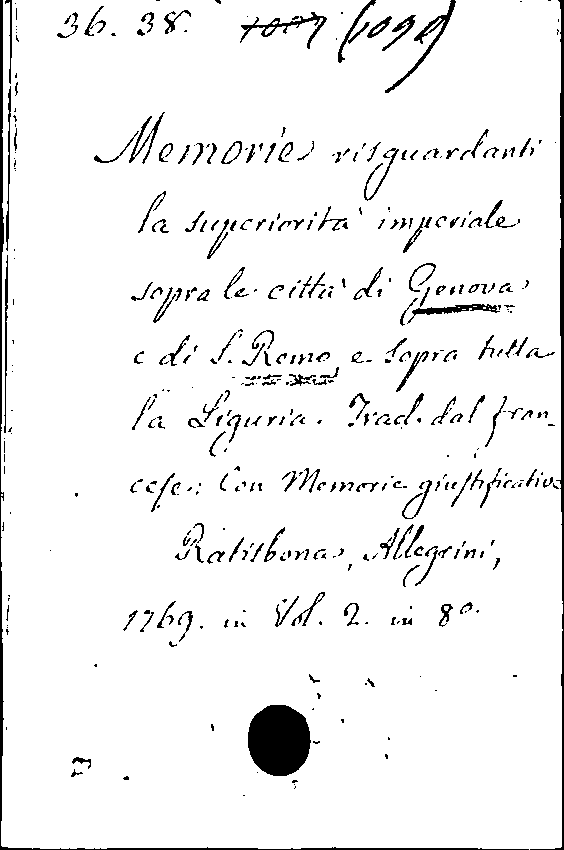 36. 38.
Memorie risguardanti
la superiorità imperiale
sopra le città di Genova
e di S. Remo e sopra tutta
la Liguria. Trad. dal fran-
cese: Con Memorie giustificative
Ratisbona, Allegrini,
1769. in Vol. 2. in 8°.